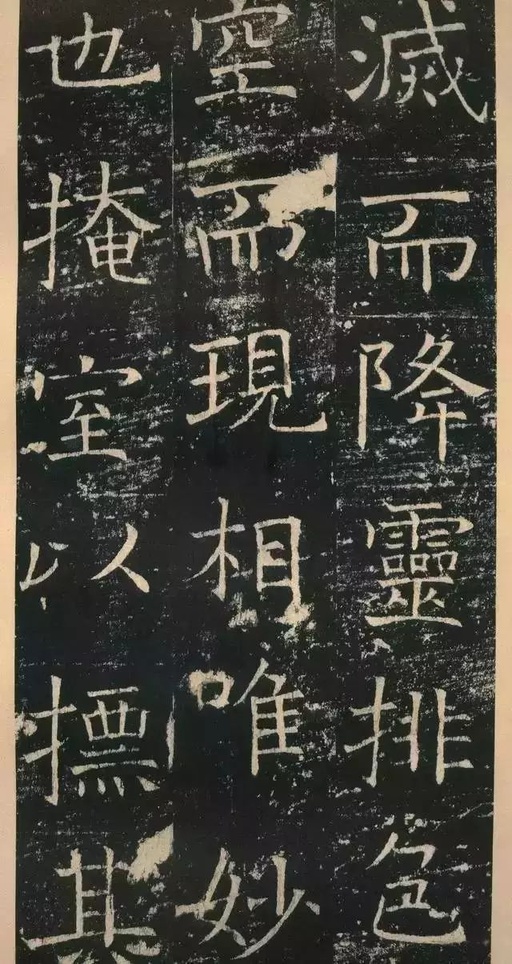 滅而降靈排色
空而現相唯妙
也掩室以摽其